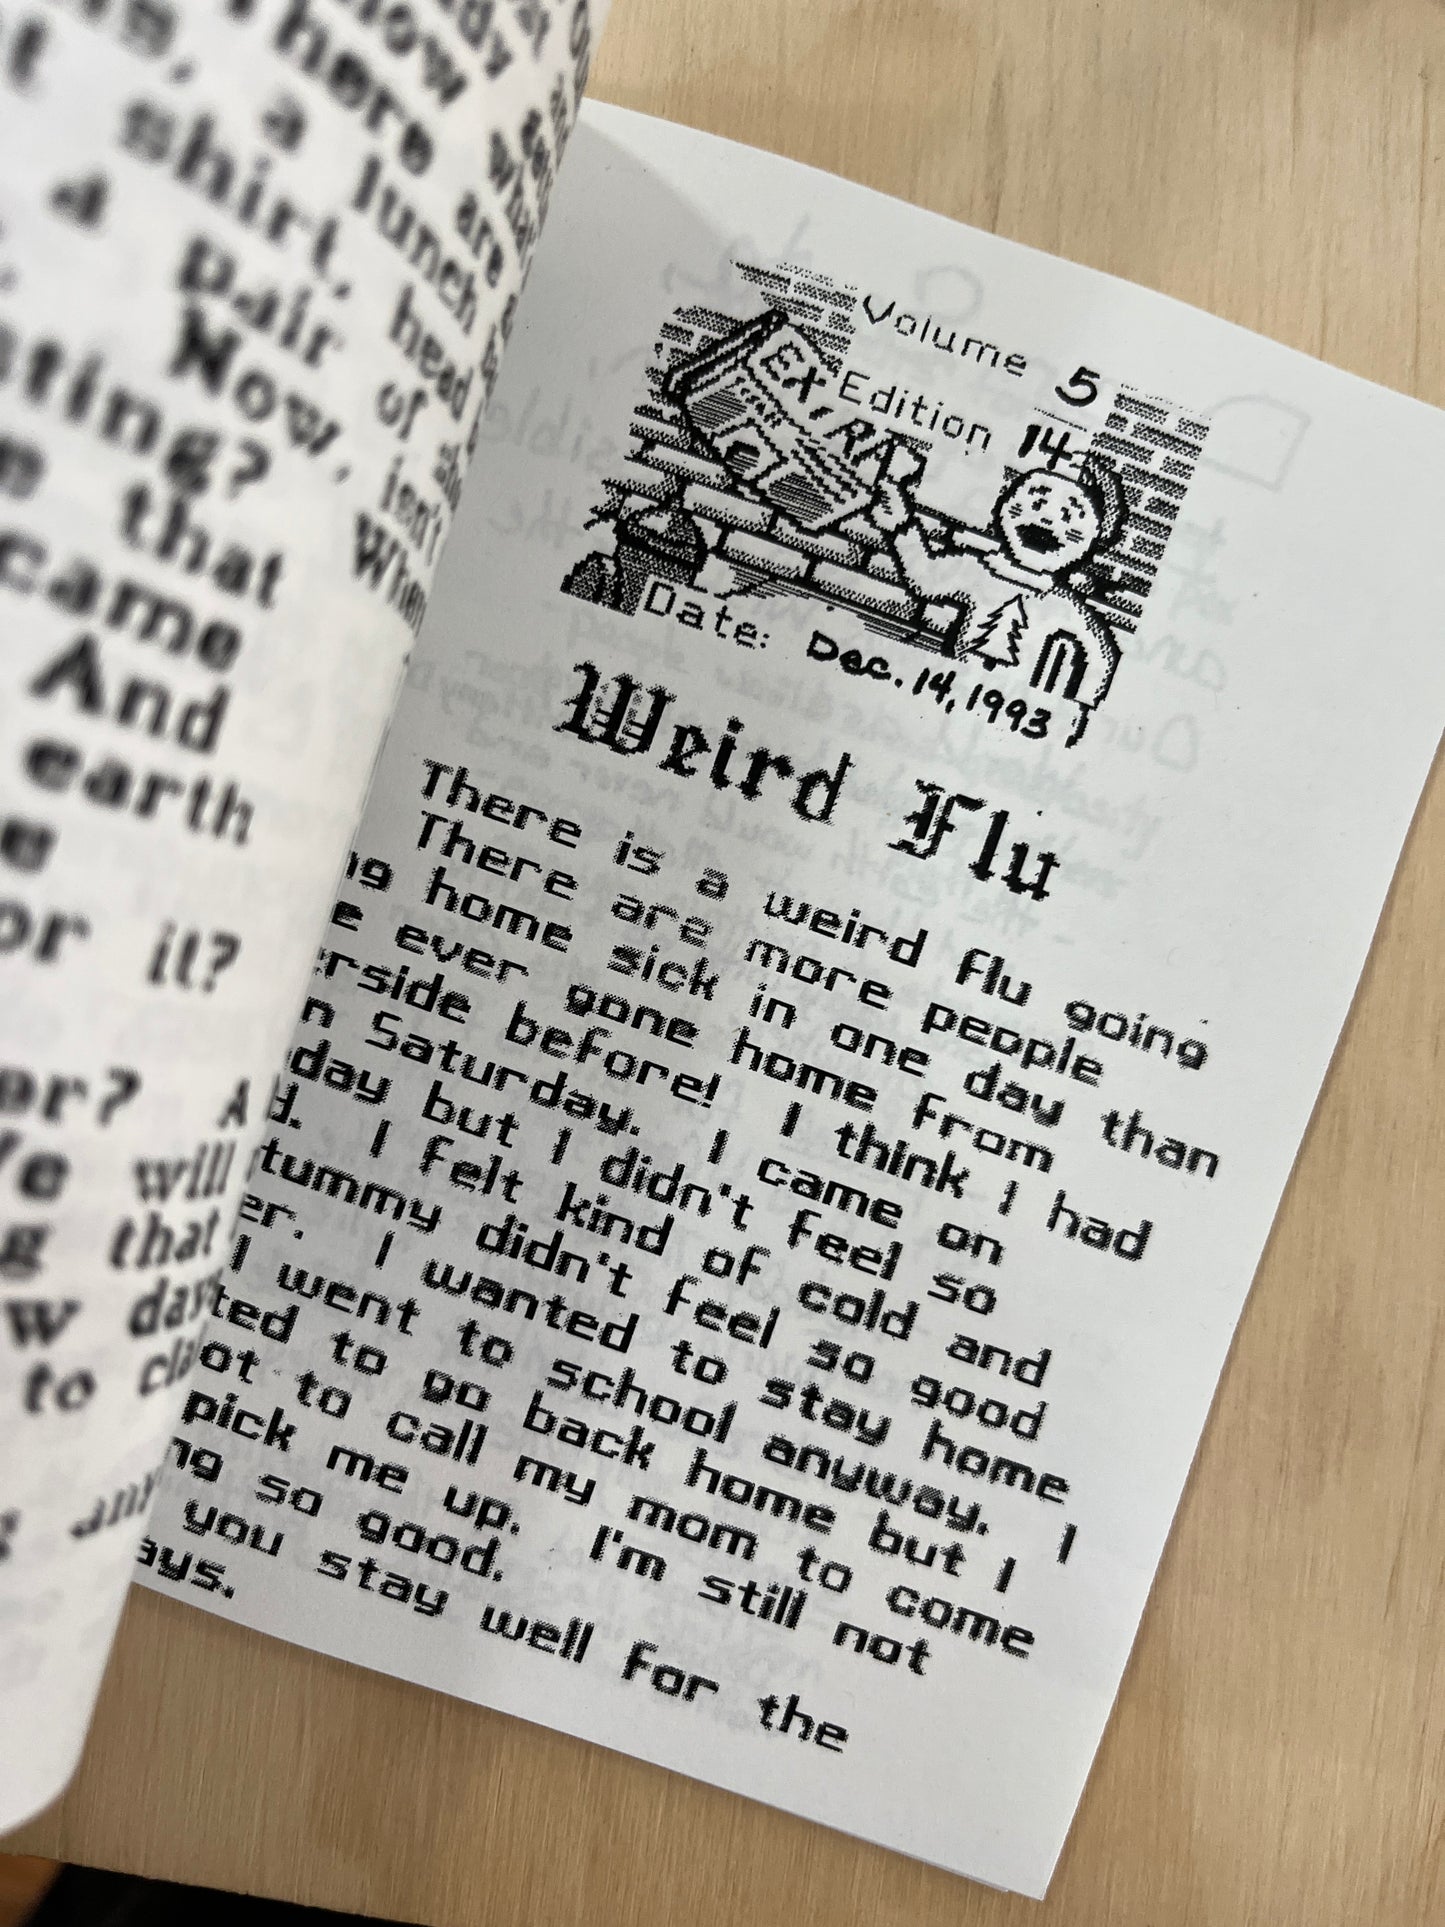 now what
There are
a lunch
shirt, head
a pair of
Now, isn't
sting? When
that
came
And
earth
or it?
er? A
will
g that
w days
to
Volume 5
EXTRA
Edition 14
Date: Dec. 14, 1993
Weird Flu
There is a weird flu going
There are more people
ng home sick in one day than
e ever gone home from
erside before! I think I had
n Saturday. I came on
day but I didn't feel so
d. I felt kind of cold and
tummy didn't feel so good
er. I wanted to stay home
I went to school anyway. I
ted to go back home but I
ot to call my mom to come
pick me up. I'm still not
ng so good.
you stay well for the
ays.